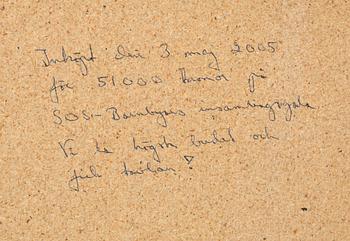 Inköpt den 3 maj 2005
för 51000 kronor på
SOS-Barnbyars insamlingsgala
Vi la högsta budet och
fick tavlan!